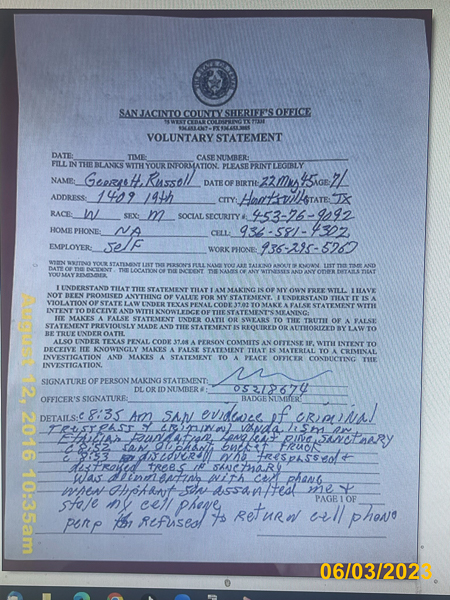 SAN JACINTO COUNTY SHERIFF'S OFFICE
75 WEST CEDAR COLDSPRING TX 77331
936.653.4367 - FX 936.653.3005
VOLUNTARY STATEMENT
DATE: TIME: CASE NUMBER:
FILL IN THE BLANKS WITH YOUR INFORMATION. PLEASE PRINT LEGIBLY
NAME: George H. Russell DATE OF BIRTH: 22 Mar 45 AGE: 71
ADDRESS: 1409 19th CITY: Huntsville STATE: TX
RACE: W SEX: M SOCIAL SECURITY #: 453-76-9092
HOME PHONE: NA CELL: 936-581-4302
EMPLOYER: Self WORK PHONE: 936-295-5767
WHEN WRITING YOUR STATEMENT LIST THE PERSON'S FULL NAME YOU ARE TALKING ABOUT IF KNOWN. LIST THE TIME AND
DATE OF THE INCIDENT. THE LOCATION OF THE INCIDENT. THE NAMES OF ANY WITNESSES AND ANY OTHER DETAILS THAT
YOU MAY REMEMBER.
I UNDERSTAND THAT THE STATEMENT I AM MAKING IS OF MY OWN FREE WILL. I HAVE
NOT BEEN PROMISED ANYTHING OF VALUE FOR MY STATEMENT. I UNDERSTAND THAT IT IS A
VIOLATION OF STATE LAW UNDER TEXAS PENAL CODE 37.02 TO MAKE A FALSE STATEMENT WITH
INTENT TO DECEIVE AND WITH KNOWLEDGE OF THE STATEMENT'S MEANING:
HE MAKES A FALSE STATEMENT UNDER OATH OR SWEARS TO THE TRUTH OF A FALSE
STATEMENT PREVIOUSLY MADE AND THE STATEMENT IS REQUIRED OR AUTHORIZED BY LAW TO
BE TRUE UNDER OATH.
ALSO UNDER TEXAS PENAL CODE 37.08 A PERSON COMMITS AN OFFENSE IF, WITH INTENT TO
DECEIVE HE KNOWINGLY MAKES A FALSE STATEMENT THAT IS MATERIAL TO A CRIMINAL
INVESTIGATION AND MAKES A STATEMENT TO A PEACE OFFICER CONDUCTING THE
INVESTIGATION.
SIGNATURE OF PERSON MAKING STATEMENT:
DL OR ID NUMBER #: 05218674
OFFICER'S SIGNATURE: BADGE NUMBER:
DETAILS: c 8:35 AM SAW evidence of criminal
Trespass & criminal vandalism on
Ethician Foundation Longleaf pine sanctuary
c 8:52 saw Oliphant bucket truck
c 9:33 discovered who trespassed &
distroyed trees in sanctuary
Was documenting with cell phone
when Oliphant son assaulted me &
stole my cell phone
PAGE 1 OF
perp refused to return cell phone
August 12, 2016 10:35am
06/03/2023